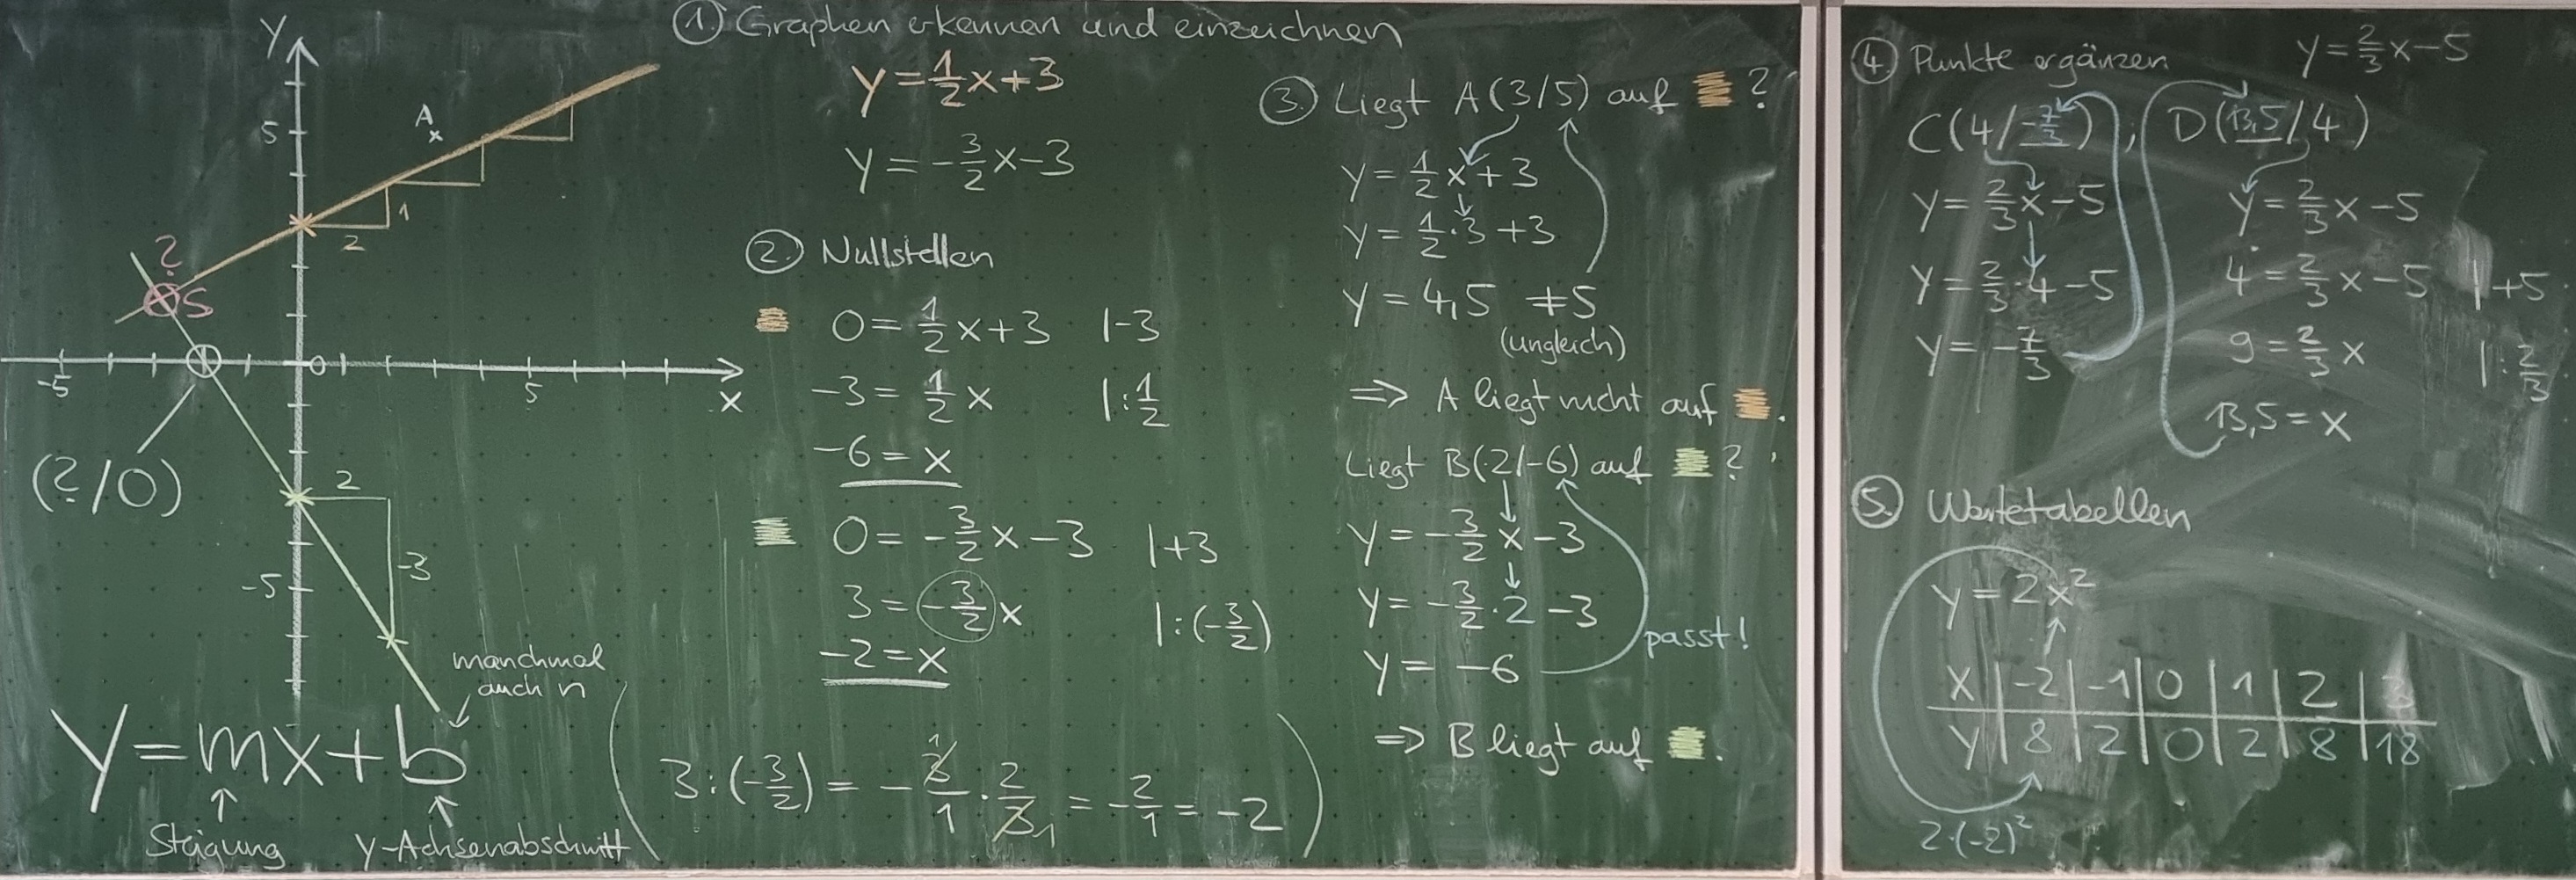 y
5
A
x
1
2
?
S
-5
0
5
x
(?/0)
2
-3
-5
manchmal
auch n
y = mx + b
Steigung
y-Achsenabschnitt
① Graphen erkennen und einzeichnen
y = 1/2 x + 3
y = -3/2 x - 3
② Nullstellen
0 = 1/2 x + 3 | -3
-3 = 1/2 x | : 1/2
-6 = x
0 = -3/2 x - 3 | +3
3 = -3/2 x | : (-3/2)
-2 = x
( 3 : (-3/2) = - 3/1 · 2/3 = - 2/1 = -2 )
1
1
③ Liegt A(3/5) auf ?
y = 1/2 x + 3
y = 1/2 · 3 + 3
y = 4,5 ≠ 5
(ungleich)
⇒ A liegt nicht auf .
Liegt B(2/-6) auf ?
y = -3/2 x - 3
y = -3/2 · 2 - 3
y = -6
passt!
⇒ B liegt auf .
④ Punkte ergänzen y = 2/3 x - 5
C(4/-7/3) ; D(13,5/4)
y = 2/3 x - 5
y = 2/3 · 4 - 5
y = -7/3
y = 2/3 x - 5
4 = 2/3 x - 5 | +5
9 = 2/3 x | : 2/3
13,5 = x
⑤ Wertetabellen
y = 2x²
x | -2 | -1 | 0 | 1 | 2 | 3
y | 8 | 2 | 0 | 2 | 8 | 18
2·(-2)²